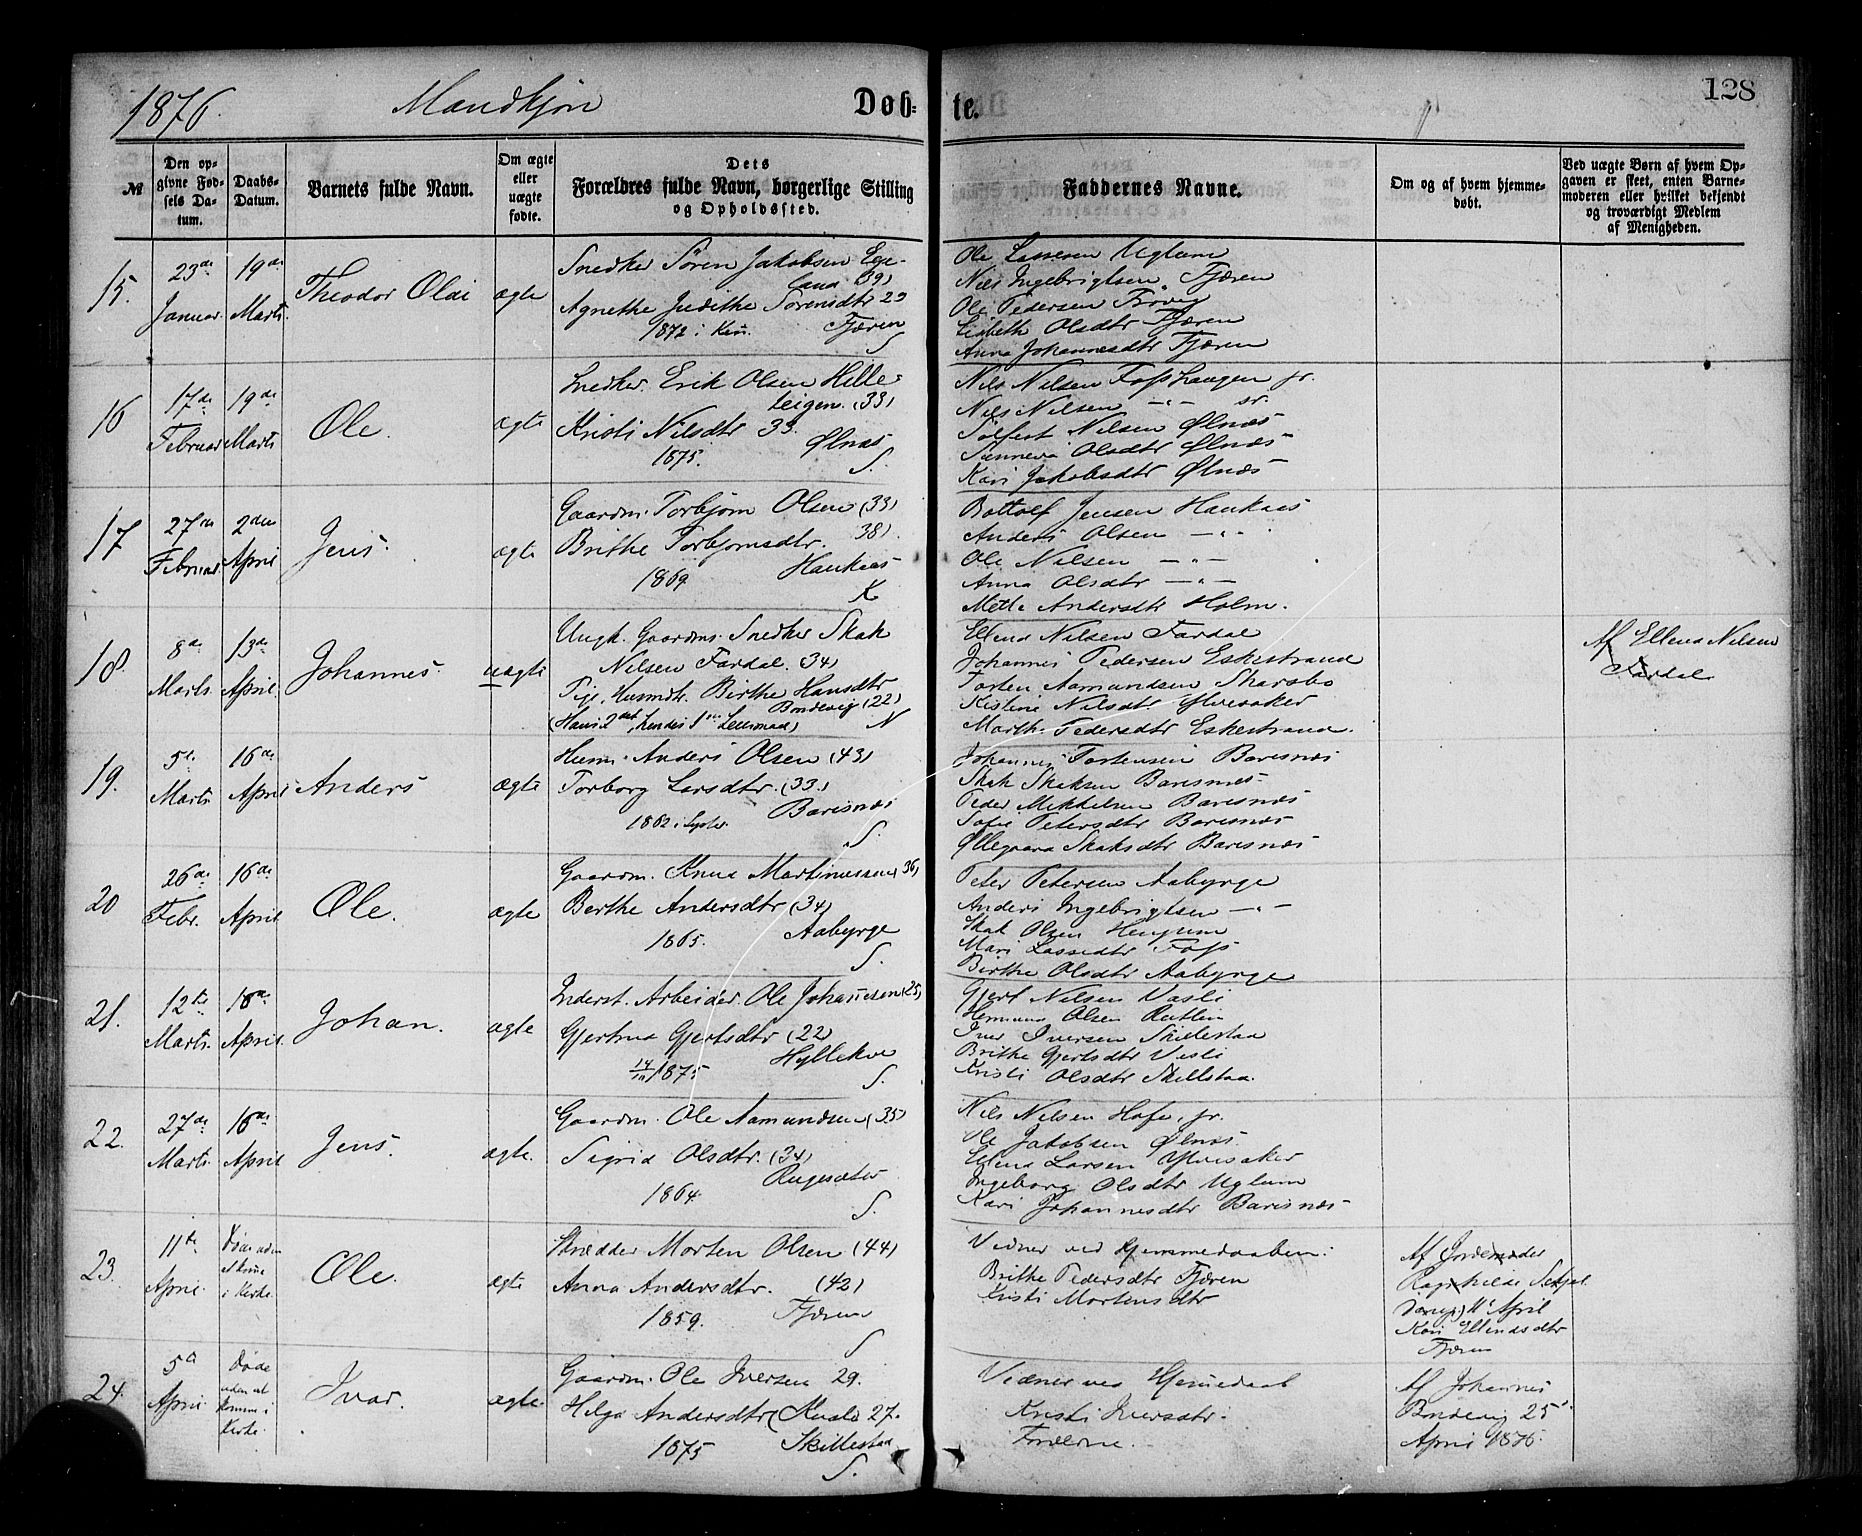 1876.
Mandkjøn
Døb-
te.
128
№
Den op-
givne Fød-
sels Da-
tum.
Daabs-
Datum.
Barnets fulde Navn.
Om ægte
eller
uægte
fødte.
Dets
Forældres fulde Navn, borgerlige Stilling
og Opholdssted.
Faddernes Navne.
Om og af hvem hjemme-
døbt.
Ved uægte Børn af hvem Op-
gaven er skeet, enten Barne-
moderen eller hvilket bekjendt
og troværdigt Medlem
af Menigheden.
15.
23de
Januar.
19de
Marts.
Theodor Olai
ægte
Snedker Søren Jakobsen Ege-
land 39)
Agnethe Judithe Sørensdtr 29
1872 i Kau. Fjæren
S
Ole Lassesen Uglum
Nils Ingebrigtsen Fjæren
Ole Pedersen
Lisbeth Olsdtr Fjæren
Anna Johannesdtr Fjæren
16
17de
Februar
19de
Marts
Ole.
ægte
Snedker. Erik Olsen Hille-
teigen. (33)
Kristi Nilsdtr 33.
1875. Ølnæs
S.
Nils Nilsen Fosshaugen jr.
Nils Nilsen —"— sr.
Nilsen Ølnæs
Sunneva Olsdtr Ølnæs
Kari Jakobsdtr Ølnæs
17
27de
Februar
2den
April
Jens.
ægte
Gaardm. Torbjørn Olsen (33)
Brithe Torbjørnsdtr. 38)
1869 Haukaas
K
Bottolf Jensen Haukaas
Anders Olsen —"—
Ole Nilsen —"—
Anna Olsdtr —"—
Mette Andersdtr Holm.
18.
8de
Marts.
13de
April.
Johannes.
uægte
Ungk. Gaardms. Snedker Skak
Nilsen Fardal. 34)
Pige, Husmdtr. Birthe Hansdtr
Bondevig (22)
(Hans 2det, hendes 1ste Leiermaal) N
Ellend Nilsen Fardal
Johannes Pedersen Eskestrand
Torsten Aamundsen Skarsbø
Kistine Nilsdtr. Yttreaker
Marth. Pedersdtr Eskestrand.
Af Ellend Nilsen
Fardal
19.
5te
Marts
16de
April
Anders
ægte
Husm. Anders Olsen (43)
Torborg Larsdtr. (33.)
1862 i Lyster. Barsnæs
S.
Johannes Torstensen Barsnæs
Skak Skaksen Barsnæs
Peder Mikkelsen Barsnæs
Sofie Petersdtr Barsnæs
Øllegaard Skaksdtr Barsnæs
20
26de
Febr.
16de
April.
Ole.
ægte
Gaardm. Knud Martinussen (36)
Berthe Andersdtr (34)
1865. Aabyrge
S.
Peter Petersen Aabyrge
Anders Ingebrigtsen —"—
Skak Olsen
Mari Lassedtr Foss
Birthe Olsdtr Aabyrge
21.
12te
Marts.
16de
April.
Johan.
ægte
Inderst. Arbeider. Ole Johannesen (25)
Gjertrud Gjertsdtr (22)
1875
S.
Gjert Nilsen Vasli
Olsen
Iver Iversen Skillestad
Brithe Gjertsdtr Vesli
Kristi Olsdtr Skillstad.
22.
27de
Marts.
16de
April
Jens.
ægte.
Gaardm. Ole Aamundsen (35)
Sigrid Olsdtr. (34)
1864. Rugesæter
S.
Nils Nilsen Hofe, jr.
Ole Jakobsen Ølnæs.
Ellend Larsen Yttresaker
Ingeborg Olsdtr Uglum
Kari Johannesdtr Barsnæs
23.
11te
April.
Døde uden
at komme
i Kirke.
Ole.
ægte
Skrædder Morten Olsen (44)
Anna Andersdtr. (42)
1859. Fjæren
S
Vidner ved Hjemmedaaben:
Brithe Pedersdtr Fjæren
Kristi Mortensdtr
Af Jordemoder
Ragnhilde
11te April
Kari Ellendsdtr
Fjæren
24.
5te
April
Døde
uden at
komme i
Kirke.
Ivar.
ægte.
Gaardm. Ole Iversen 29.
Helga Andersdtr (Kvale) 27.
1875 Skillestad
S.
Vidner ved Hjemmedaab
Kristi Iversdtr.
Forældrene.
Af Johannes
Bondevig 25de
April 1876.